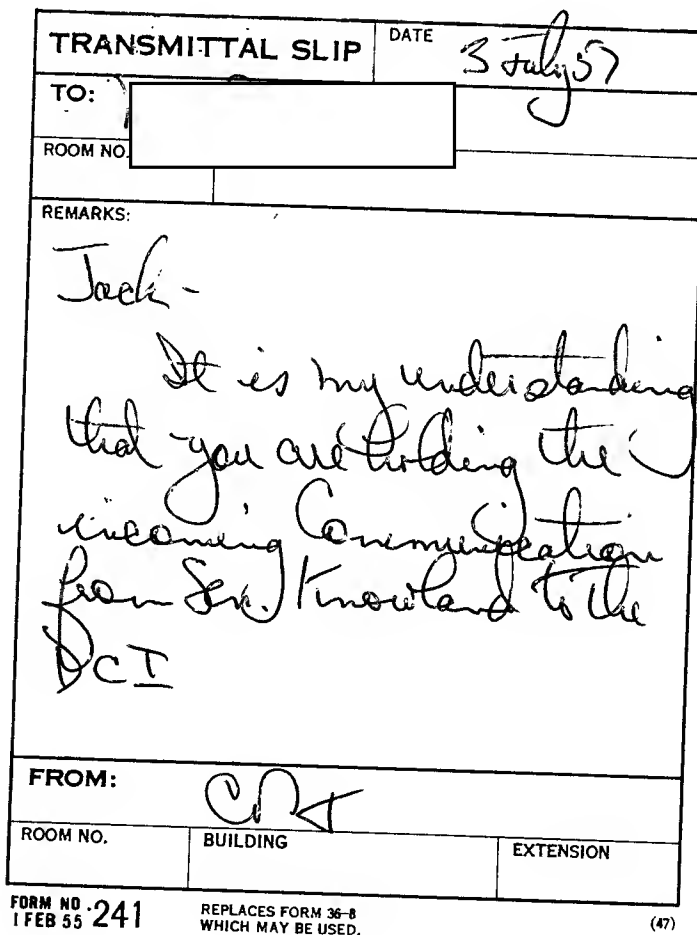 TRANSMITTAL SLIP
DATE
3 July 57
TO:
ROOM NO.
REMARKS:
Jack -
It is my understanding
that you are holding the
incoming Communication
from Sen. Knowland to the
DCI
FROM:
ROOM NO.
BUILDING
EXTENSION
FORM NO. 241
1 FEB 55
REPLACES FORM 36-8
WHICH MAY BE USED.
(47)